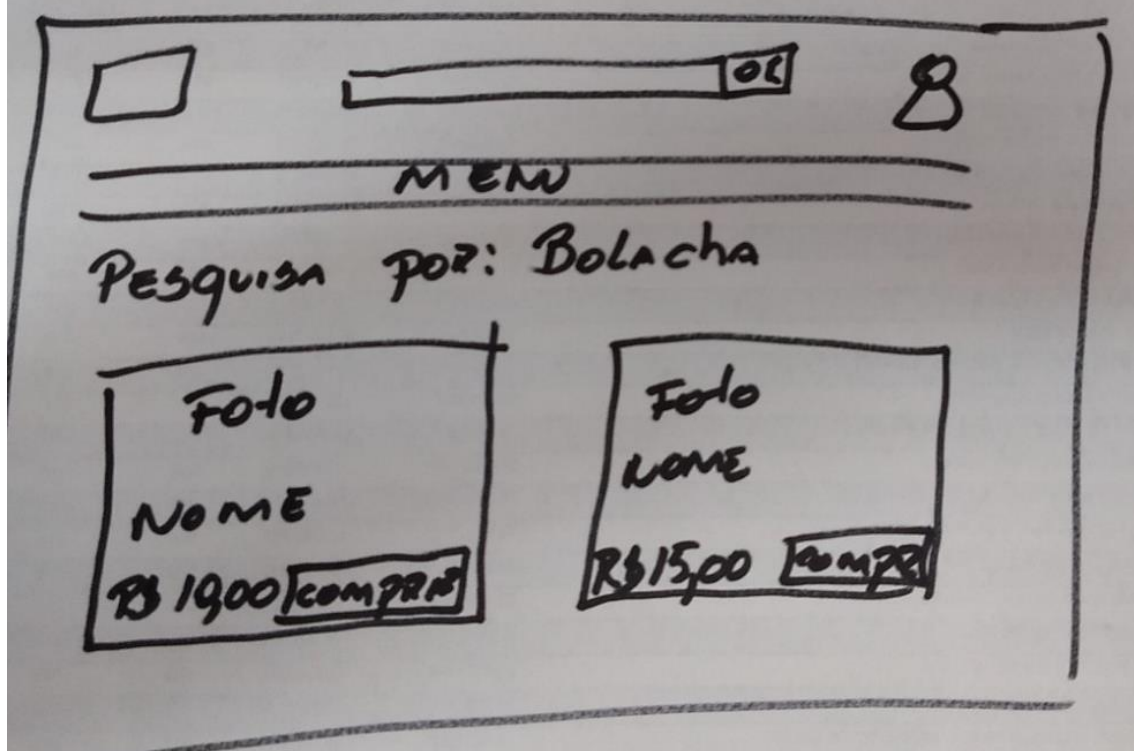 OK
MENU
Pesquisa por: Bolacha
Foto
Nome
R$ 10,00 comprar
Foto
Nome
R$ 15,00